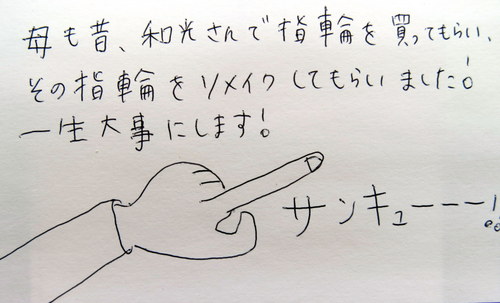 母も昔、和光さんで指輪を買ってもらい、
その指輪をリメイクしてもらいました!
一生大事にします!
サンキューーー!!